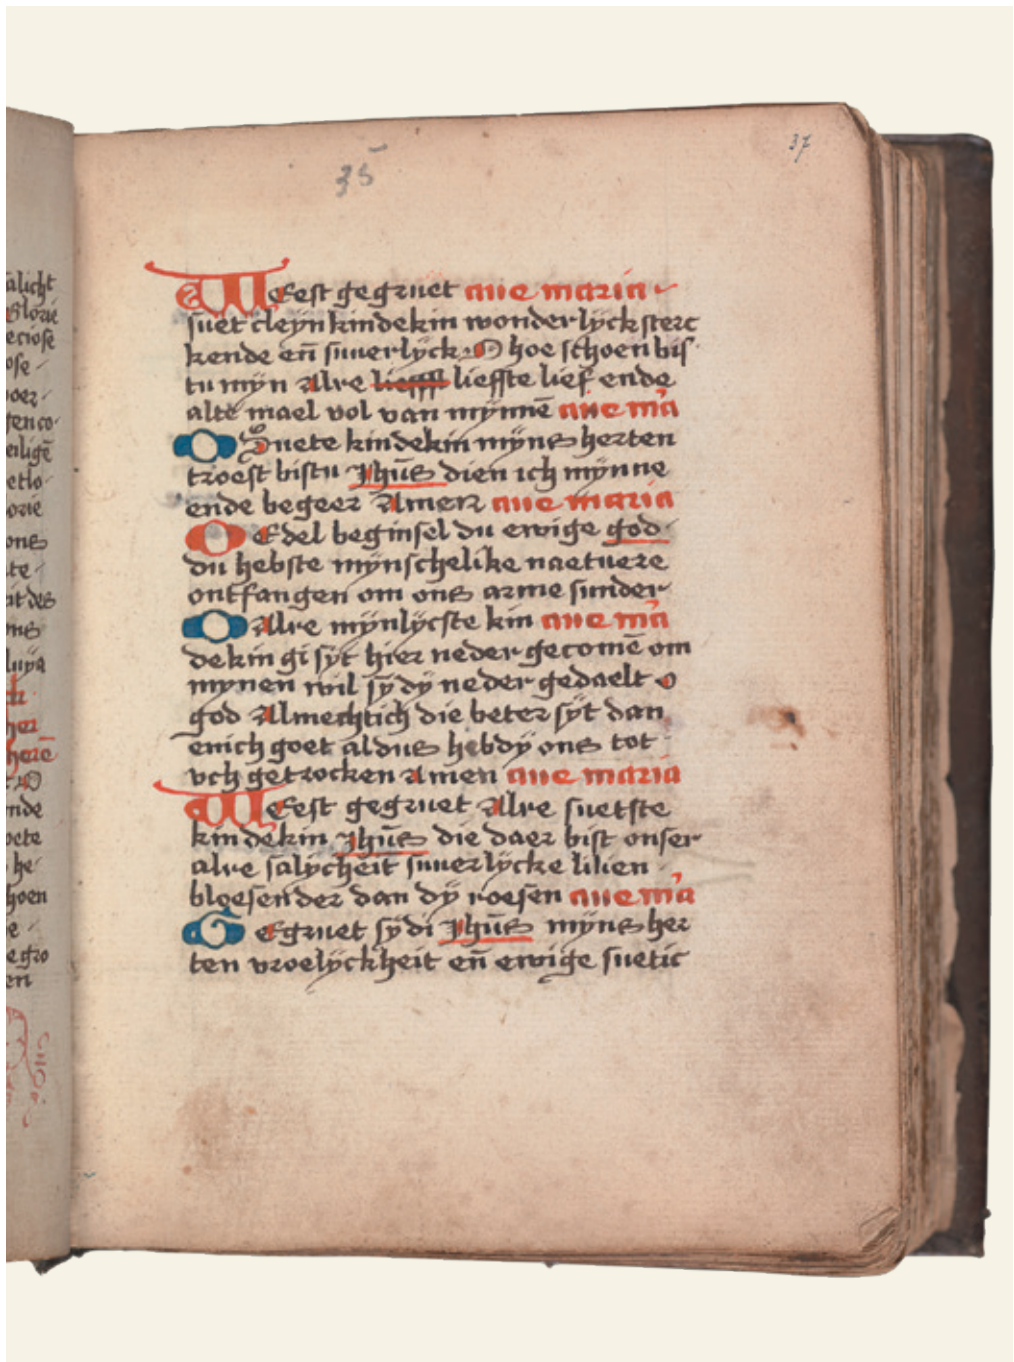 35
37
WEest gegruet aue maria
suet cleyn kindekin wonderlÿck sterc
kende en̄ suuerlÿck O hoe schoen bis
tu mÿn Alre liefff liefste lief ende
alte mael vol van mÿnnē aue mā
O Suete kindekin mÿns herten
troest bistu Jhūs dien ich mÿnne
ende begeer Amen aue maria
O Edel beginsel du ewige god
du hebste mÿnschelike naetuere
ontfangen om ons arme sunder
O Alre mÿnlÿcste kin aue mā
dekin gi sÿt hier neder gecomē om
mynen wil sÿ dÿ neder gedaelt o
god Almechtich die beter sÿt dan
enich goet aldus hebdÿ ons tot
vch getrocken Amen aue maria
WEest gegruet Alre suetste
kindekin Jhūs die daer bist onser
alre salÿcheit suuerlÿcke lilien
bloesender dan dÿ roesen aue mā
GEgruet sÿdi Jhūs mÿns her
ten vroelÿckheit en̄ ewige suetic